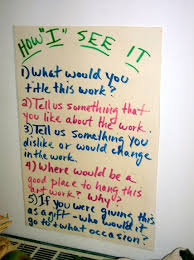 HOW "I" SEE IT
1) What would you
title this work?
2) Tell us something that
you like about the work.
3) Tell us something you
dislike or would change
in the work.
4) Where would be a
good place to hang this
art work? Why?
5) If you were giving this
as a gift - who would it
go to & what occasion?